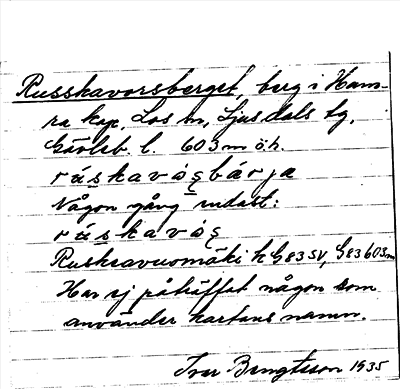 Russkavorsberget, berg i Ham-
ra kap. Los sn, Ljusdals tg,
Gävleb. l. 603 m ö.h.
rúskavósbárja
Någon gång endast:
rúskavós
Ruskeavuomäki k G 83 SV, G 83 603 m
Har ej påträffat någon som
använder kartans namn.
Ivar Bengtsson 1935